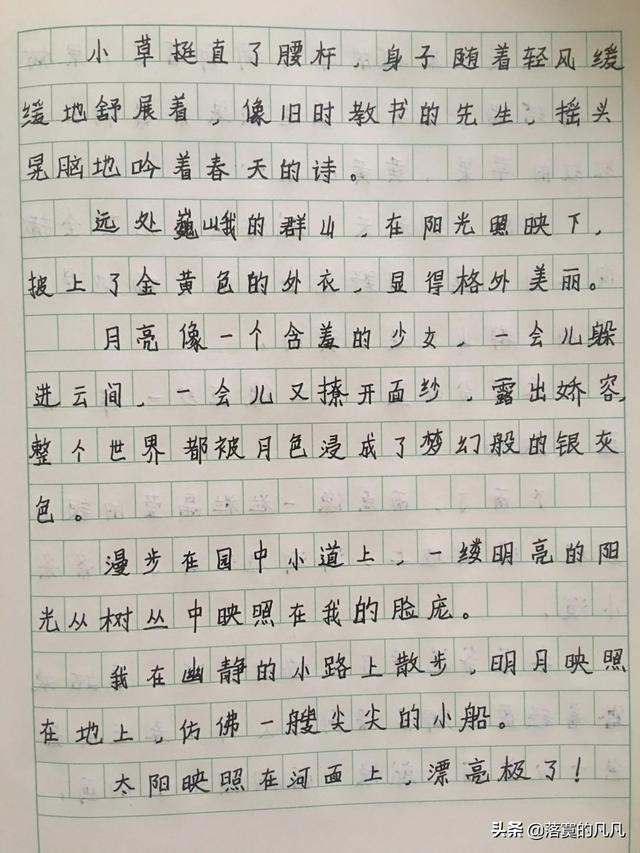 小草挺直了腰杆，身子随着轻风缓
缓地舒展着，像旧时教书的先生，摇头
晃脑地吟着春天的诗。
远处巍峨的群山，在阳光照映下，
披上了金黄色的外衣，显得格外美丽。
月亮像一个含羞的少女，一会儿躲
进云间，一会儿又撩开面纱，露出娇容，
整个世界都被月色浸成了梦幻般的银灰
色。
漫步在园中小道上，一缕明亮的阳
光从树丛中映照在我的脸庞。
我在幽静的小路上散步，明月映照
在地上，仿佛一艘尖尖的小船。
太阳映照在河面上，漂亮极了！
头条 @落寞的凡凡